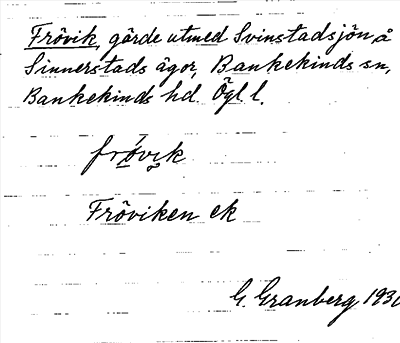 Frövik, gärde utmed Svinstadsjön, å
Sinnerstads ägor, Bankekinds sn,
Bankekinds hd. Ögl. l.
frøvɩk
Fröviken ek
G. Granberg 193